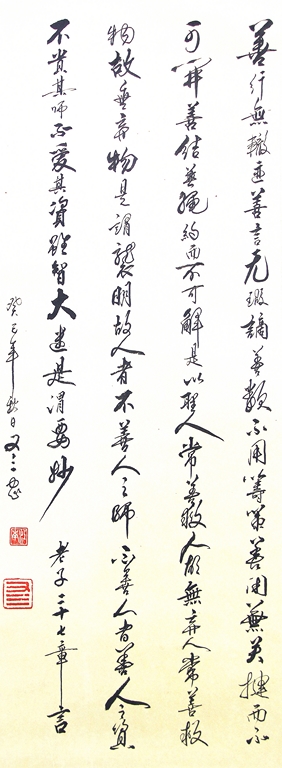 善行無轍迹善言无瑕謫善數不用籌策善閉無关揵而不
可開善結無繩約而不可解是以聖人常善救人故無弃人常善救
物故無弃物是謂襲明故人者不善人之師不善人者善人之資
不貴其師不愛其資雖智大迷是謂要妙 老子二十七章言
癸巳年秋日又三